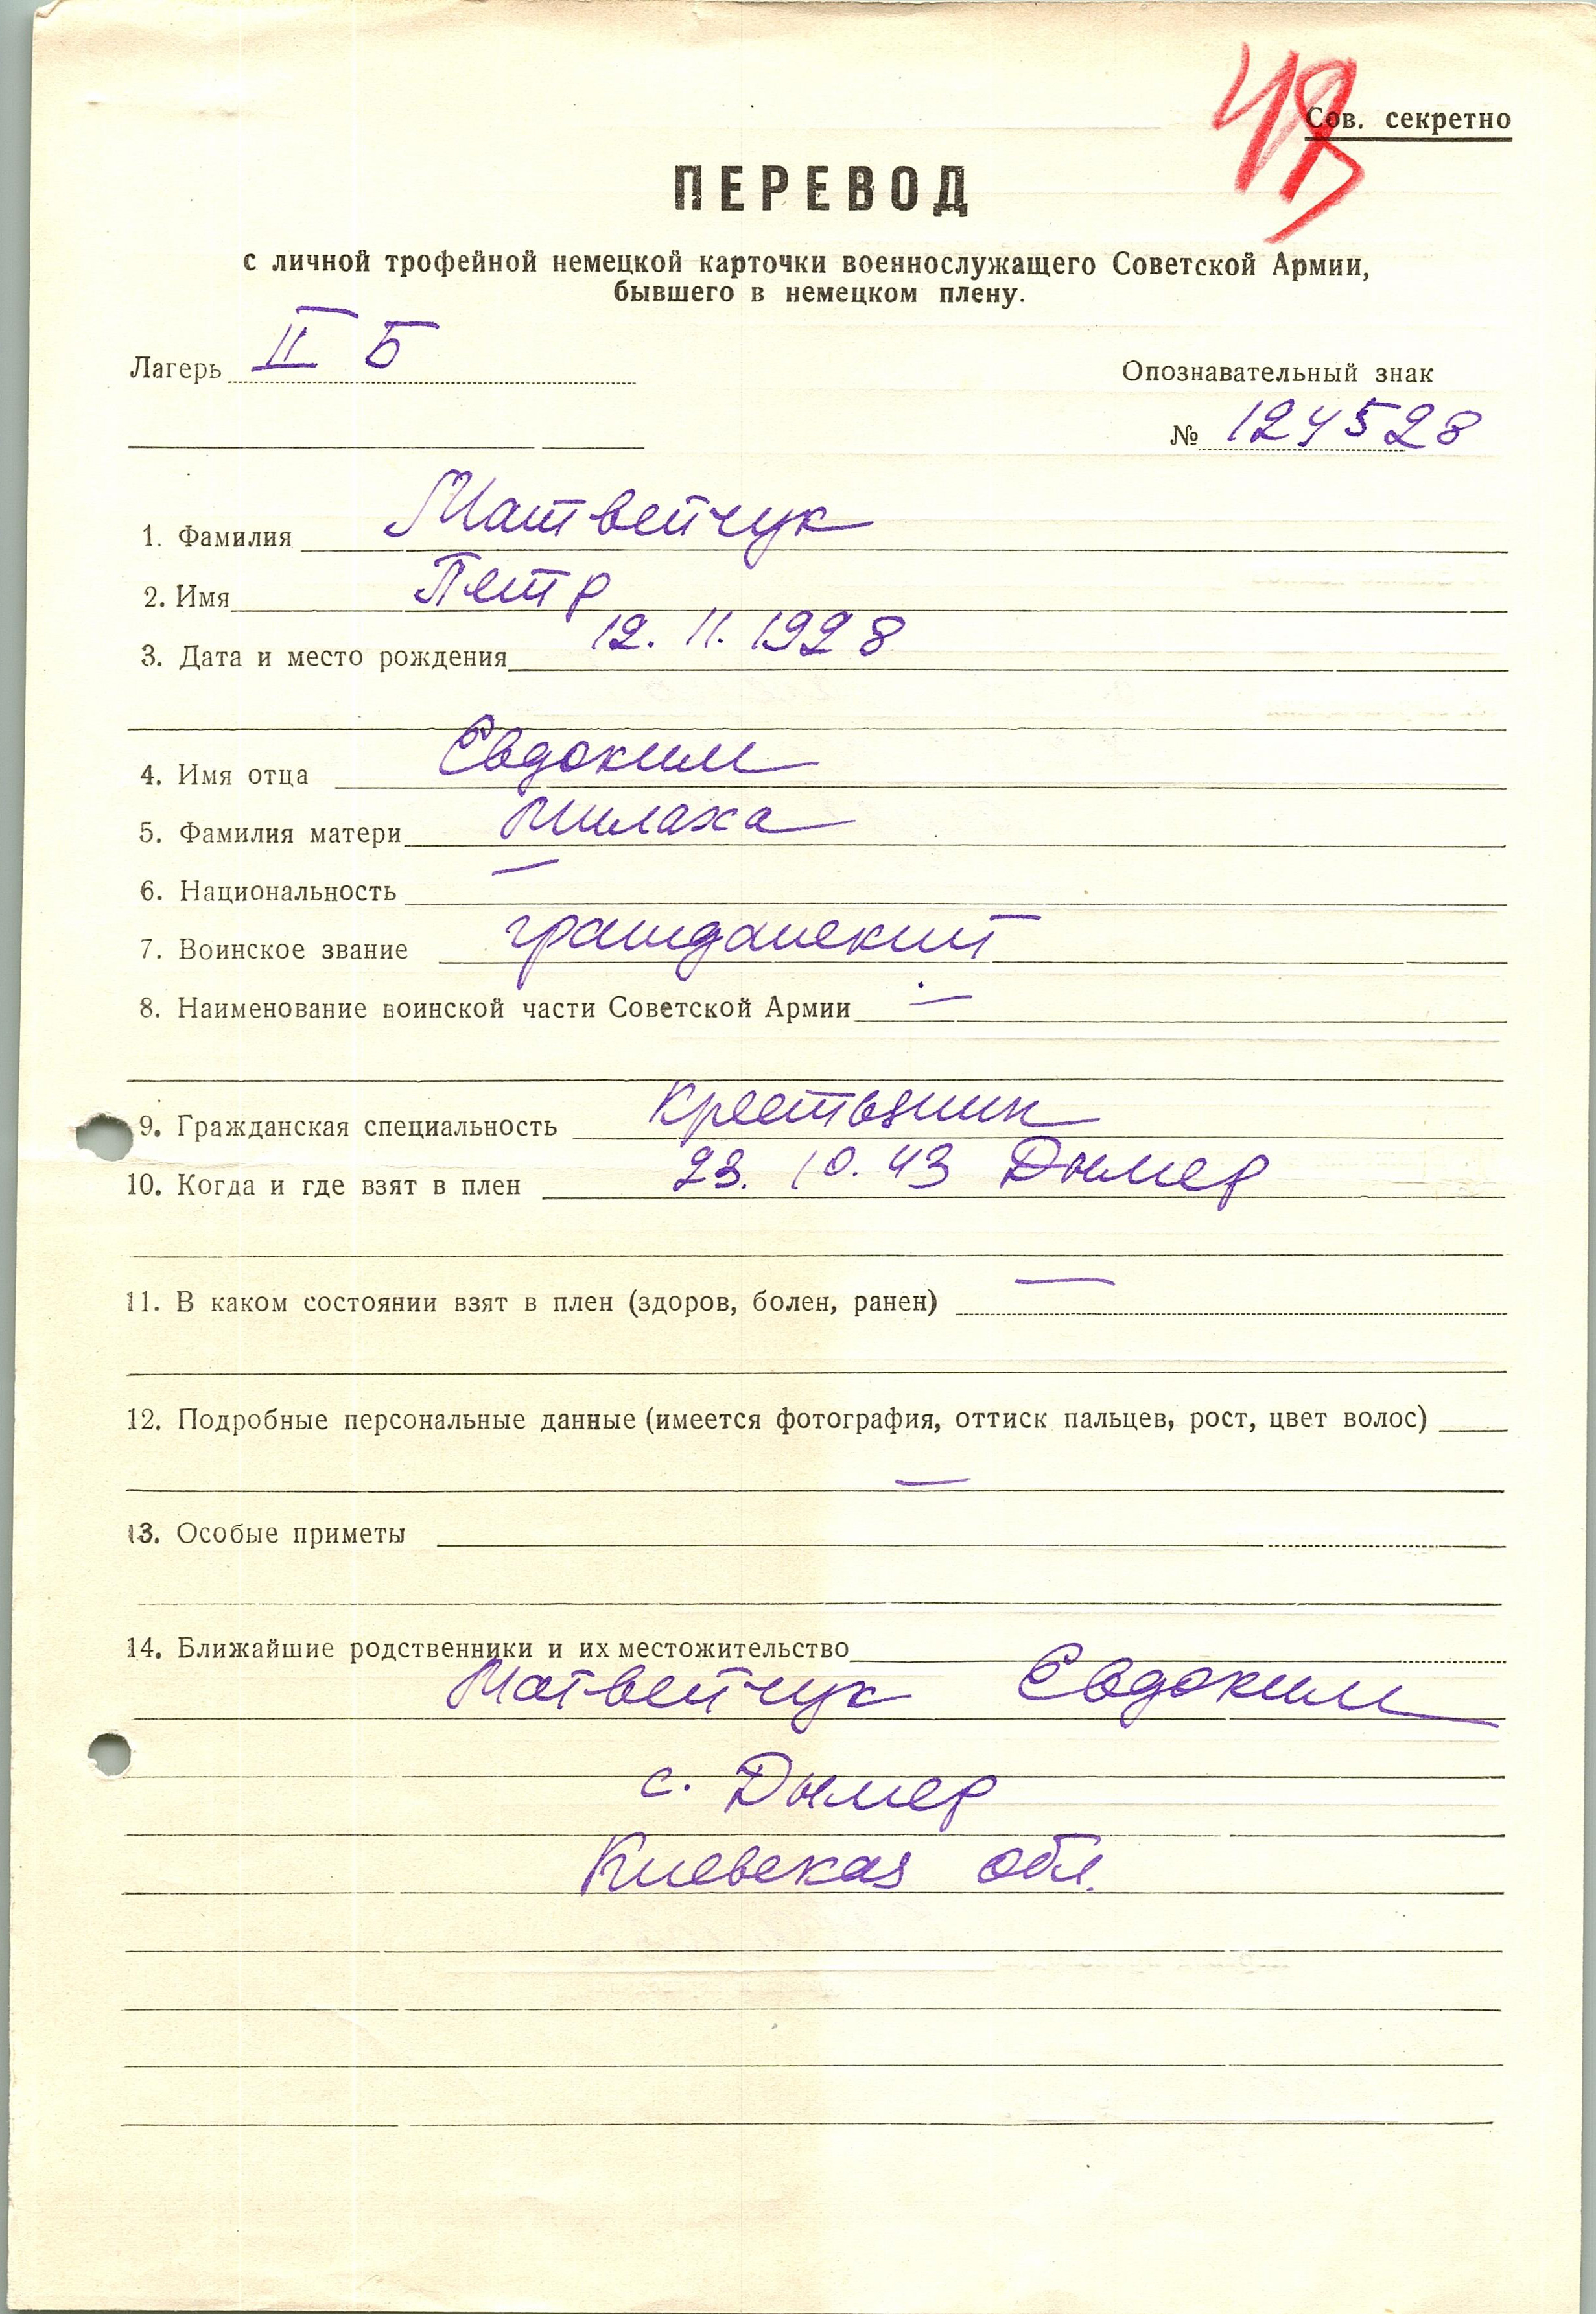 Сов. секретно
ПЕРЕВОД
с личной трофейной немецкой карточки военнослужащего Советской Армии,
бывшего в немецком плену.
Лагерь II Б
Опознавательный знак
№ 124528
1. Фамилия Матвейчук
2. Имя Петр
3. Дата и место рождения 12. 11. 1928
4. Имя отца Евдоким
5. Фамилия матери Милаха
6. Национальность —
7. Воинское звание гражданский
8. Наименование воинской части Советской Армии —
9. Гражданская специальность крестьянин
10. Когда и где взят в плен 23. 10. 43 Дымер
11. В каком состоянии взят в плен (здоров, болен, ранен) —
12. Подробные персональные данные (имеется фотография, оттиск пальцев, рост, цвет волос)
—
13. Особые приметы
14. Ближайшие родственники и их местожительство
Матвейчук Евдоким
с. Дымер
Киевская обл.